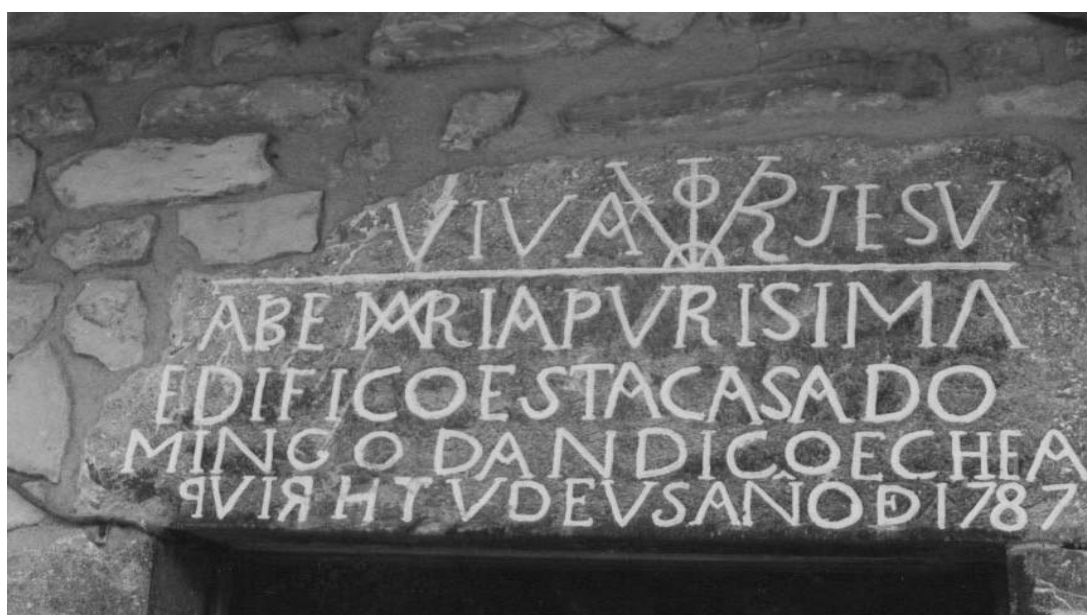 VIVA JESV
ABE MARIA PVRISIMA
EDIFICO ESTA CASA DO
MINGO DANDICOECHEA
AÑO DE 1787